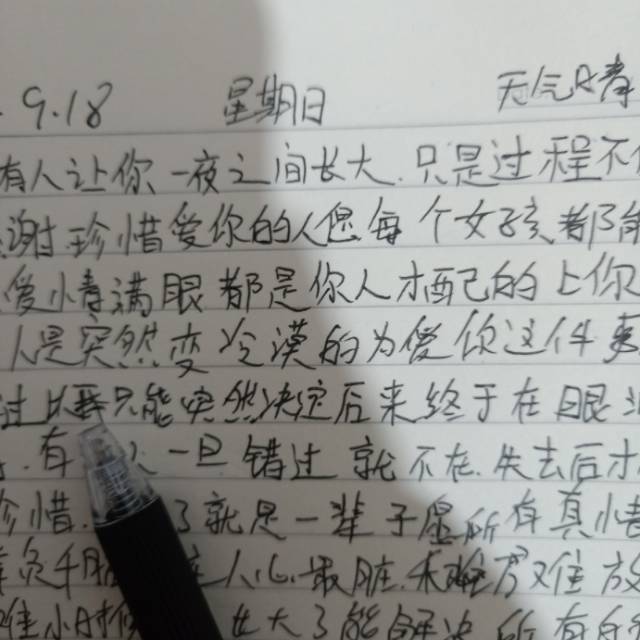 9.18 星期日 天气晴
有人让你一夜之间长大.只是过程不
谢珍惜爱你的人愿每个女孩都能
爱情满眼都是你人才配的上你
人是突然变冷漠的为爱你这件事
过只能突然决定后来终于在眼
有一旦错过就不在.失去后才
珍惜.了就是一辈子愿所有真情
人心.最脏 难放
小时 长大了能解决所有